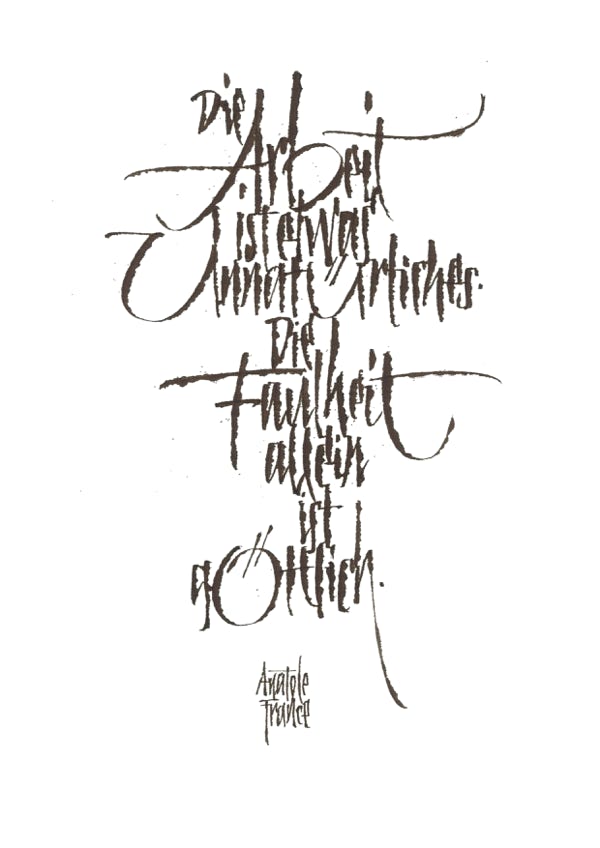 Die
Arbeit
ist etwas
Unnatürliches.
Die
Faulheit
allein
ist
göttlich.
Anatole
France